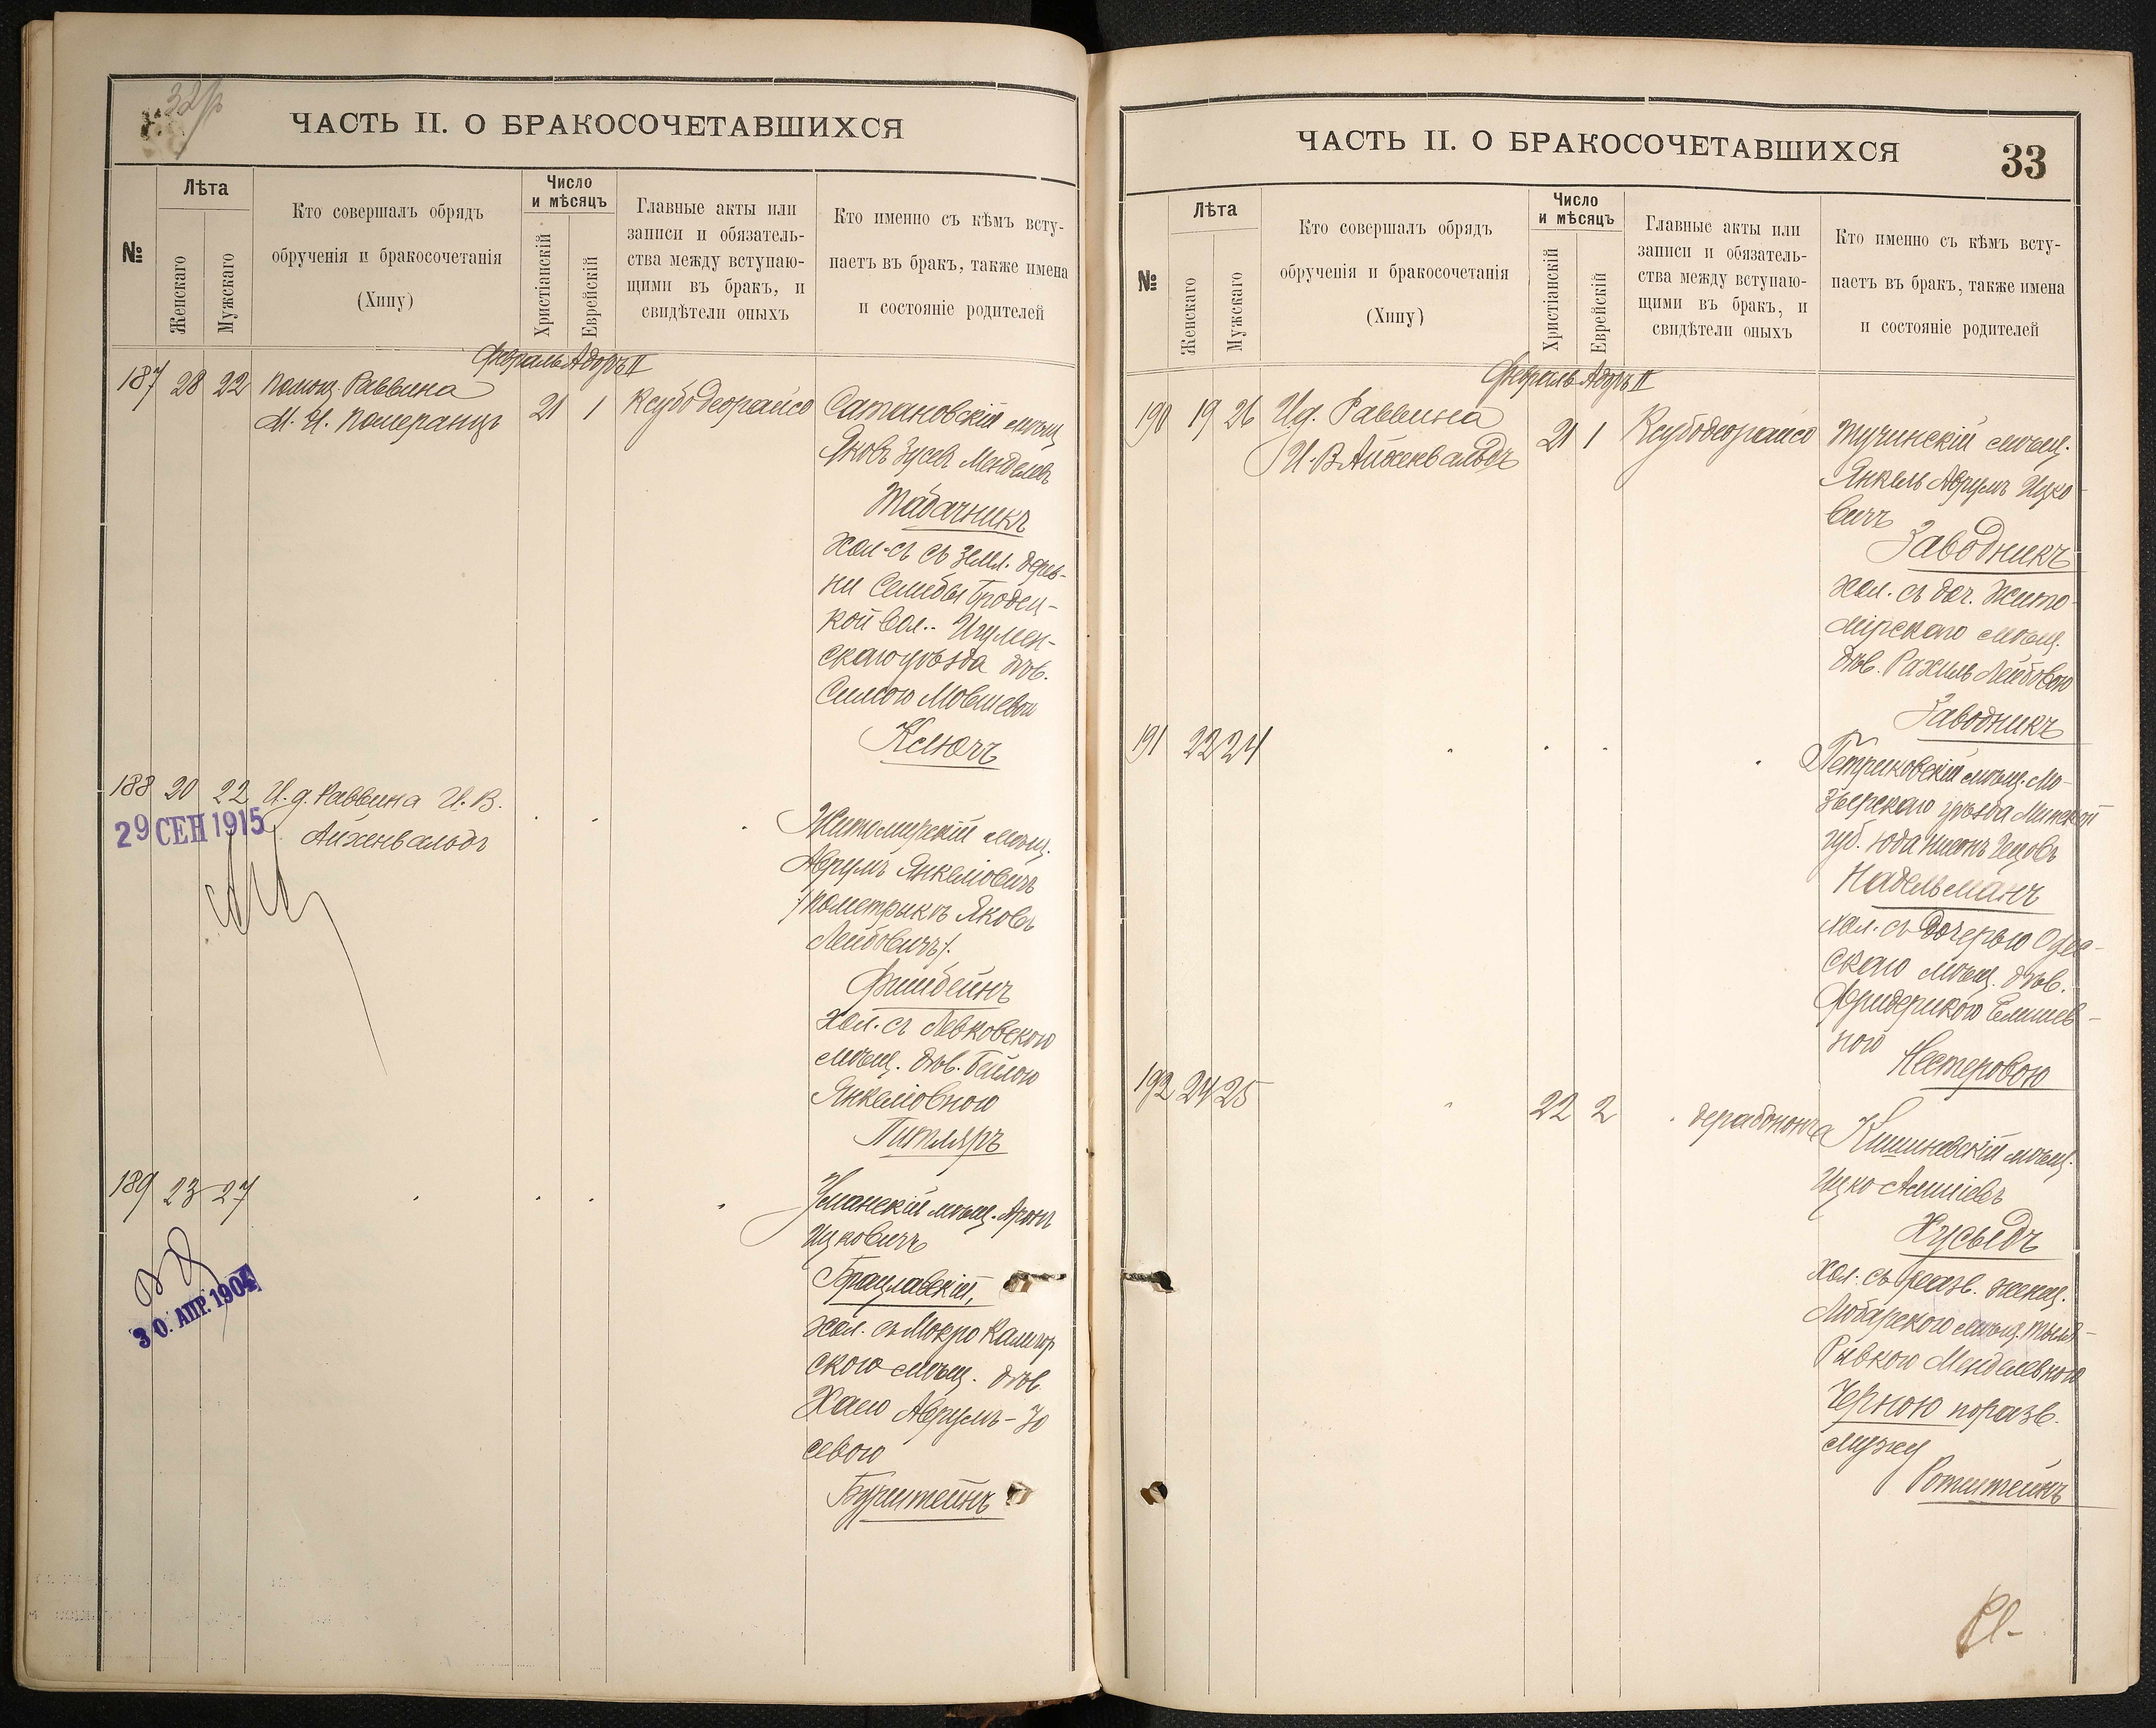 ЧАСТЬ II. О БРАКОСОЧЕТАВШИХСЯ
№
Лѣта
Женскаго
Мужскаго
Кто совершалъ обрядъ
обрученія и бракосочетанія
(Хипу)
Число
и мѣсяцъ
Христіанскій
Еврейскій
Главные акты или
записи и обязатель-
ства между вступаю-
щими въ бракъ, и
свидѣтели оныхъ
Кто именно съ кѣмъ всту-
паетъ въ бракъ, также имена
и состояніе родителей
Февраль Адоръ II
187 28 22 Помощ. Раввина
М. И. Померанцъ
21 1 Ксубодеорайсо
Сатановскій мѣщ.
Яковъ Зусевъ Менделевъ
Табачникъ
хол-съ съ земл. дерев-
ни Селибы Бродец-
кой вол.. Игумен-
скаго уѣзда дѣв.
Симою Мовшевой
Ключъ
188 20 22 И. д. Раввина И. В.
Айхенвальдъ
29 СЕН 1915
Житомирскій мѣщ.
Аврумъ Янкеліовичъ
/по метрыкѣ Яковъ
Лейбовичъ/.
Фишбейнъ
хол. съ Левковскою
мѣщ. дѣв. Бейлою
Янкеліовною
Питляръ
189 23 27
30. АПР. 1904
Уманскій мѣщ. Аронъ
Ицковичъ
Брацлавскій,
хол. съ Мокро Калигор
скою мѣщ. дѣв.
Хаею Аврумъ-Іо
севою
Бурштейнъ
ЧАСТЬ II. О БРАКОСОЧЕТАВШИХСЯ
33
№
Лѣта
Женскаго
Мужскаго
Кто совершалъ обрядъ
обрученія и бракосочетанія
(Хипу)
Число
и мѣсяцъ
Христіанскій
Еврейскій
Главные акты или
записи и обязатель-
ства между вступаю-
щими въ бракъ, и
свидѣтели оныхъ
Кто именно съ кѣмъ всту-
паетъ въ бракъ, также имена
и состояніе родителей
Февраль Адоръ II
190 19 26 И.д. Раввина
И. В. Айхенвальдъ
21 1 Ксубодеорайсо
Тучинскій мѣщ.
Янкель Аврумъ Ицко
вичъ
Заводникъ
хол. съ доч. Жито-
мірскаго мѣщ.
дѣв. Рахиль Лейбовою
Заводникъ
191 22 24
Петриковскій мѣщ. Мо-
зырскаго уѣзда Минской
губ. Юда Нисонъ
Надельманъ
хол. съ дочерью Одес-
скаго мѣщ. дѣв.
Фридерикою
ною
Нестеровою
192 24 25
22 2 дерабононча
Кишиневскій мѣщ.
Ицко
Хусыдъ
хол. съ разв. женщ.
Любарскою мѣщ.
Рывкою Менделевною
Черною по разв.
мужу
Ротштейнъ